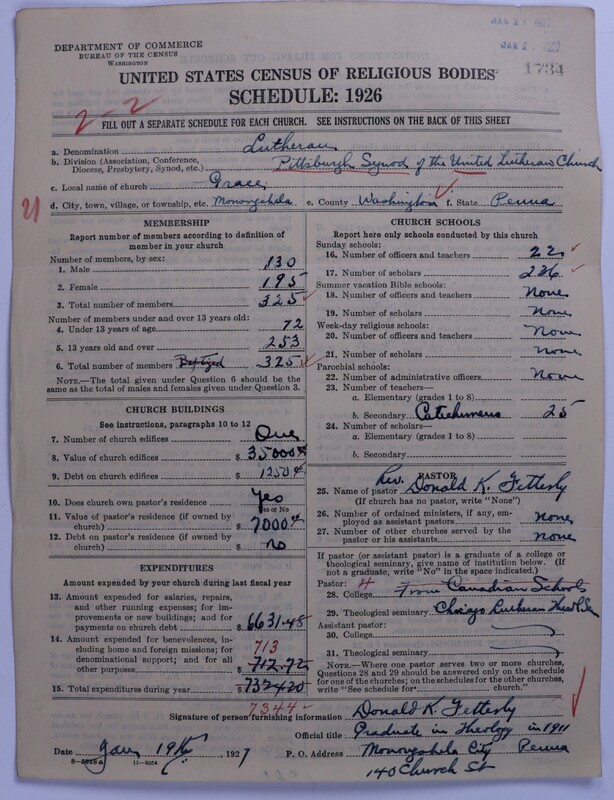 DEPARTMENT OF COMMERCE
BUREAU OF THE CENSUS
WASHINGTON
1734
UNITED STATES CENSUS OF RELIGIOUS BODIES
SCHEDULE: 1926
2-2
FILL OUT A SEPARATE SCHEDULE FOR EACH CHURCH. SEE INSTRUCTIONS ON THE BACK OF THIS SHEET
a. Denomination Lutheran
b. Division (Association, Conference, Diocese, Presbytery, Synod, etc.) Pittsburgh Synod of the United Lutheran Church
c. Local name of church Grace
d. City, town, village, or township, etc. Monongahela e. County Washington f. State Penna
MEMBERSHIP
Report number of members according to definition of member in your church
Number of members, by sex:
1. Male 130
2. Female 195
3. Total number of members 325
Number of members under and over 13 years old:
4. Under 13 years of age 72
5. 13 years old and over 253
6. Total number of members Baptized 325
NOTE.—The total given under Question 6 should be the same as the total of males and females given under Question 3.
CHURCH BUILDINGS
See instructions, paragraphs 10 to 12
7. Number of church edifices One
8. Value of church edifices $ 35000
9. Debt on church edifices $ 1250
10. Does church own pastor's residence Yes
Yes or No
11. Value of pastor's residence (if owned by church) $ 7000
12. Debt on pastor's residence (if owned by church) $ no
EXPENDITURES
Amount expended by your church during last fiscal year
13. Amount expended for salaries, repairs, and other running expenses; for improvements or new buildings; and for payments on church debt $ 6631.48
14. Amount expended for benevolences, including home and foreign missions; for denominational support; and for all other purposes 713 $ 712.72
15. Total expenditures during year $ 7344.20
7344
CHURCH SCHOOLS
Report here only schools conducted by this church
Sunday schools:
16. Number of officers and teachers 22
17. Number of scholars 226
Summer vacation Bible schools:
18. Number of officers and teachers None
19. Number of scholars None
Week-day religious schools:
20. Number of officers and teachers None
21. Number of scholars None
Parochial schools:
22. Number of administrative officers None
23. Number of teachers—
a. Elementary (grades 1 to 8)
b. Secondary Catechumens 25
24. Number of scholars—
a. Elementary (grades 1 to 8)
b. Secondary
PASTOR
25. Name of pastor Rev. Donald K. Fetterly
(If church has no pastor, write "None")
26. Number of ordained ministers, if any, employed as assistant pastors none
27. Number of other churches served by the pastor or his assistants none
If pastor (or assistant pastor) is a graduate of a college or theological seminary, give name of institution below. (If not a graduate, write "No" in the space indicated.)
Pastor:
28. College From Canadian Schools
29. Theological seminary Chicago Lutheran Theol. Sem
Assistant pastor:
30. College
31. Theological seminary
NOTE.—Where one pastor serves two or more churches, Questions 28 and 29 should be answered only on the schedule for one of the churches; on the schedules for the other churches, write "See schedule for church."
Signature of person furnishing information Donald K. Fetterly
Official title Graduate in Theology in 1911
Date Jan 19th, 1927 P. O. Address Monongahela City Penna
8—5518a 11—9034 140 Church St